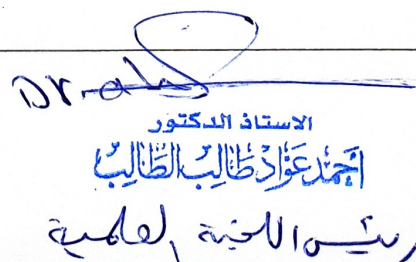 الاستاذ الدكتور
احمد عواد طالب الطالب
رئيس اللجنة العلمية